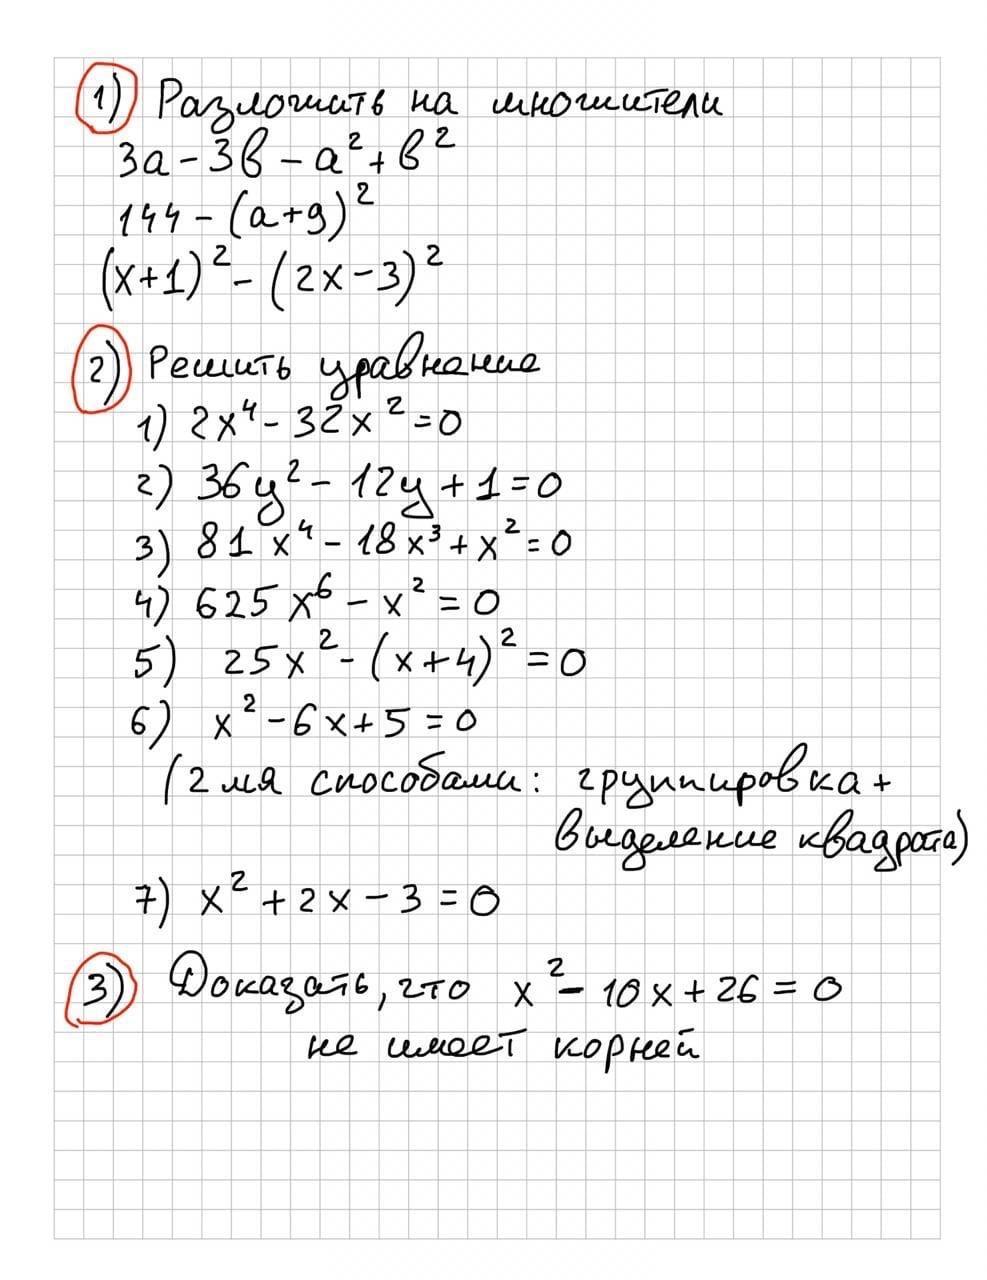 1) Разложить на множители
3a - 3в - a² + в²
144 - (a+9)²
(x+1)² - (2x-3)²
2) Решить уравнение
1) 2x⁴ - 32x² = 0
2) 36y² - 12y + 1 = 0
3) 81x⁴ - 18x³ + x² = 0
4) 625x⁶ - x² = 0
5) 25x² - (x+4)² = 0
6) x² - 6x + 5 = 0
(2мя способами: группировка +
выделение квадрата)
7) x² + 2x - 3 = 0
3) Доказать, что x² - 10x + 26 = 0
не имеет корней